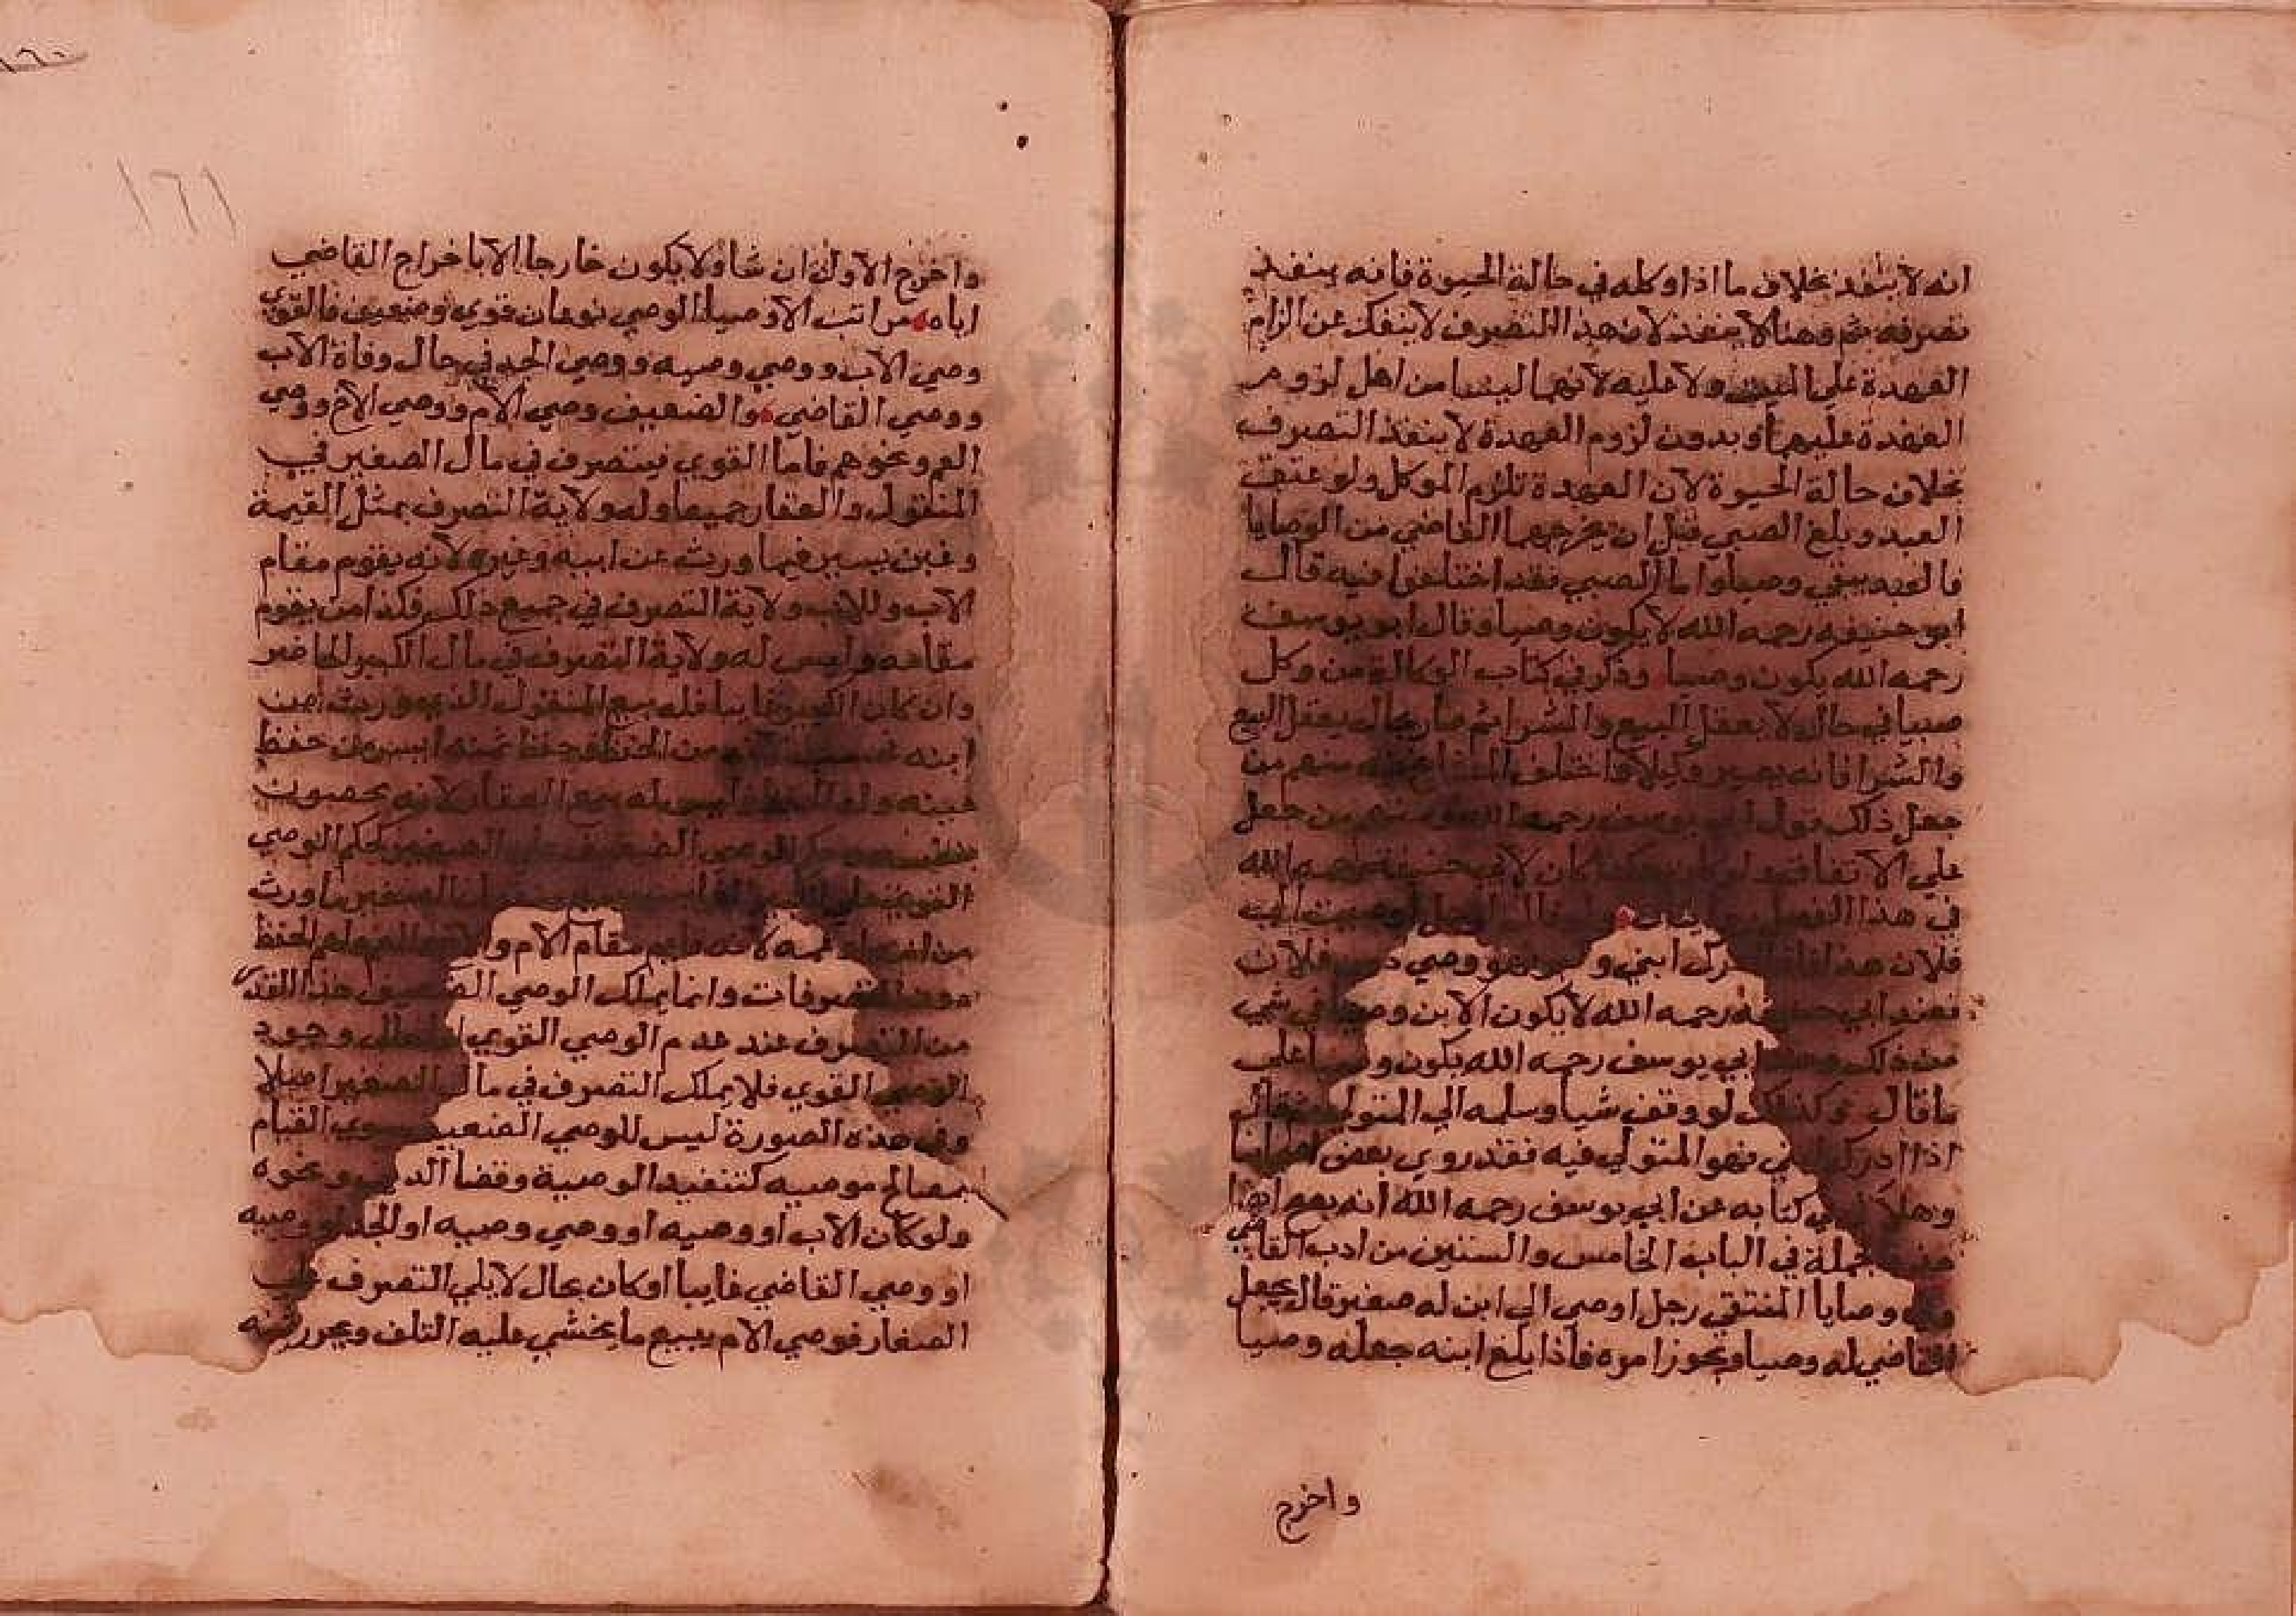 انه لا ينفذ بخلاف ما اذا وكله في حالة الحيوة فانه ينفذ
تصرفه ثم وهنا لا ينفذ لان هذا التصرف لا ينفك عن الزام
العهدة على الميت ولا عليه لانهما ليسا من اهل لزوم
العهدة عليهما وبدون لزوم العهدة لا ينفذ التصرف
بخلاف حالة الحيوة لان العهدة تلزم الموكل ولو عتق
العبد وبلغ الصبي قبل ان يخرجهما القاضي من الوصايا
فالعبد يبقي وصيا واما الصبي فقد اختلفوا فيه قال
ابو حنيفه رحمه الله لا يكون وصيا وقال ابو يوسف
رحمه الله يكون وصيا وذكر في كتاب الوكالة من وكل
صبيا في حال لا يعقل البيع والشرا ثم صار بحال يعقل البيع
والشرا فانه يصير وكيلا واختلف المشايخ منهم من
جعل ذلك قول ابي يوسف رحمه الله ومنهم من جعل
علي الاتفاق لابي حنيفة رحمه الله
في هذا الفصل
فلان هذا فاذا ادرك ابني وصي دون فلان
فعند ابي حنيفه رحمه الله لا يكون الابن وصيا في شي
من ذلك وعند ابي يوسف رحمه الله يكون وصيا على
ما قال وكذلك لو وقف شيا وسلمه الي المتولي فقال
اذا ادرك ابني فهو المتولي فيه فقد روي بعض اصحابنا
وهلال في كتابه عن ابي يوسف رحمه الله انه يصح ايضا
هذه الجملة في الباب الخامس والستين من ادب القاضي
وفي وصايا المنتقي رجل اوصي الي ابن له صغير قال يجعل
القاضي له وصيا ويجوز امره فاذا بلغ ابنه جعله وصيا
واخرج
١٦١
واخرج الاول ان شا ولا يكون خارجا الا باخراج القاضي
اياه مراتب الاوصيا الوصي نوعان قوي وضعيف فالقوي
وصي الاب ووصي وصيه ووصي الجد في حال وفاة الاب
ووصي القاضي والضعيف وصي الام ووصي الاخ ووصي
العم ونحوهم فاما القوي فيتصرف في مال الصغير في
المنقول والعقار جميعا وله ولاية التصرف بمثل القيمة
وغبن يسير فيما ورث عن ابيه وغيره لانه يقوم مقام
الاب وللاب ولاية التصرف في جميع ذلك فكذا من يقوم
مقامه وليس له ولاية التصرف في مال الكبير الحاضر
وان كان الكبير غايبا فله بيع المنقول الذي ورث من
ابيه من الحفظ وحفظ ثمنه ايسر من حفظ
عينه وله الحفظ وليس له بيع العقار لانه محصون
بنفسه وحكم الوصي الضعيف على الصغير كحكم الوصي
القوي على الكبير الصغير ما ورث
من امه او عمه لانه قايم مقام الام والاخ والعم ولهم الحفظ
دون التصرفات وانما يملك الوصي الضعيف هذا القدر
من التصرف عند عدم الوصي القوي اما حال وجود
الوصي القوي فلا يملك التصرف في مال الصغير اصلا
وفي هذه الصورة ليس للوصي الضعيف سوي القيام
بمصالح موصيه كتنفيذ الوصية وقضا الدين ونحوه
ولو كان الاب او وصيه او وصي وصيه او الجد او وصيه
او وصي القاضي غايبا او كان بحال لا يلي التصرف في
الصغار فوصي الام يبيع ما يخشي عليه التلف ويحرز ثمنه